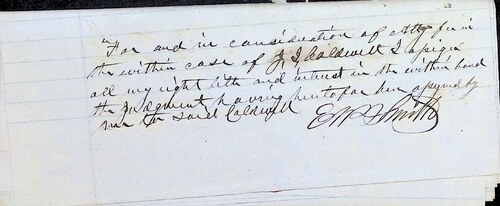 "For and in consideration of Atty fee in
the within case of J. J. Caldwell I assign
all my right title and interest in the within bond
the Judgment having heretofore been assigned by
me to said Caldwell
Smith